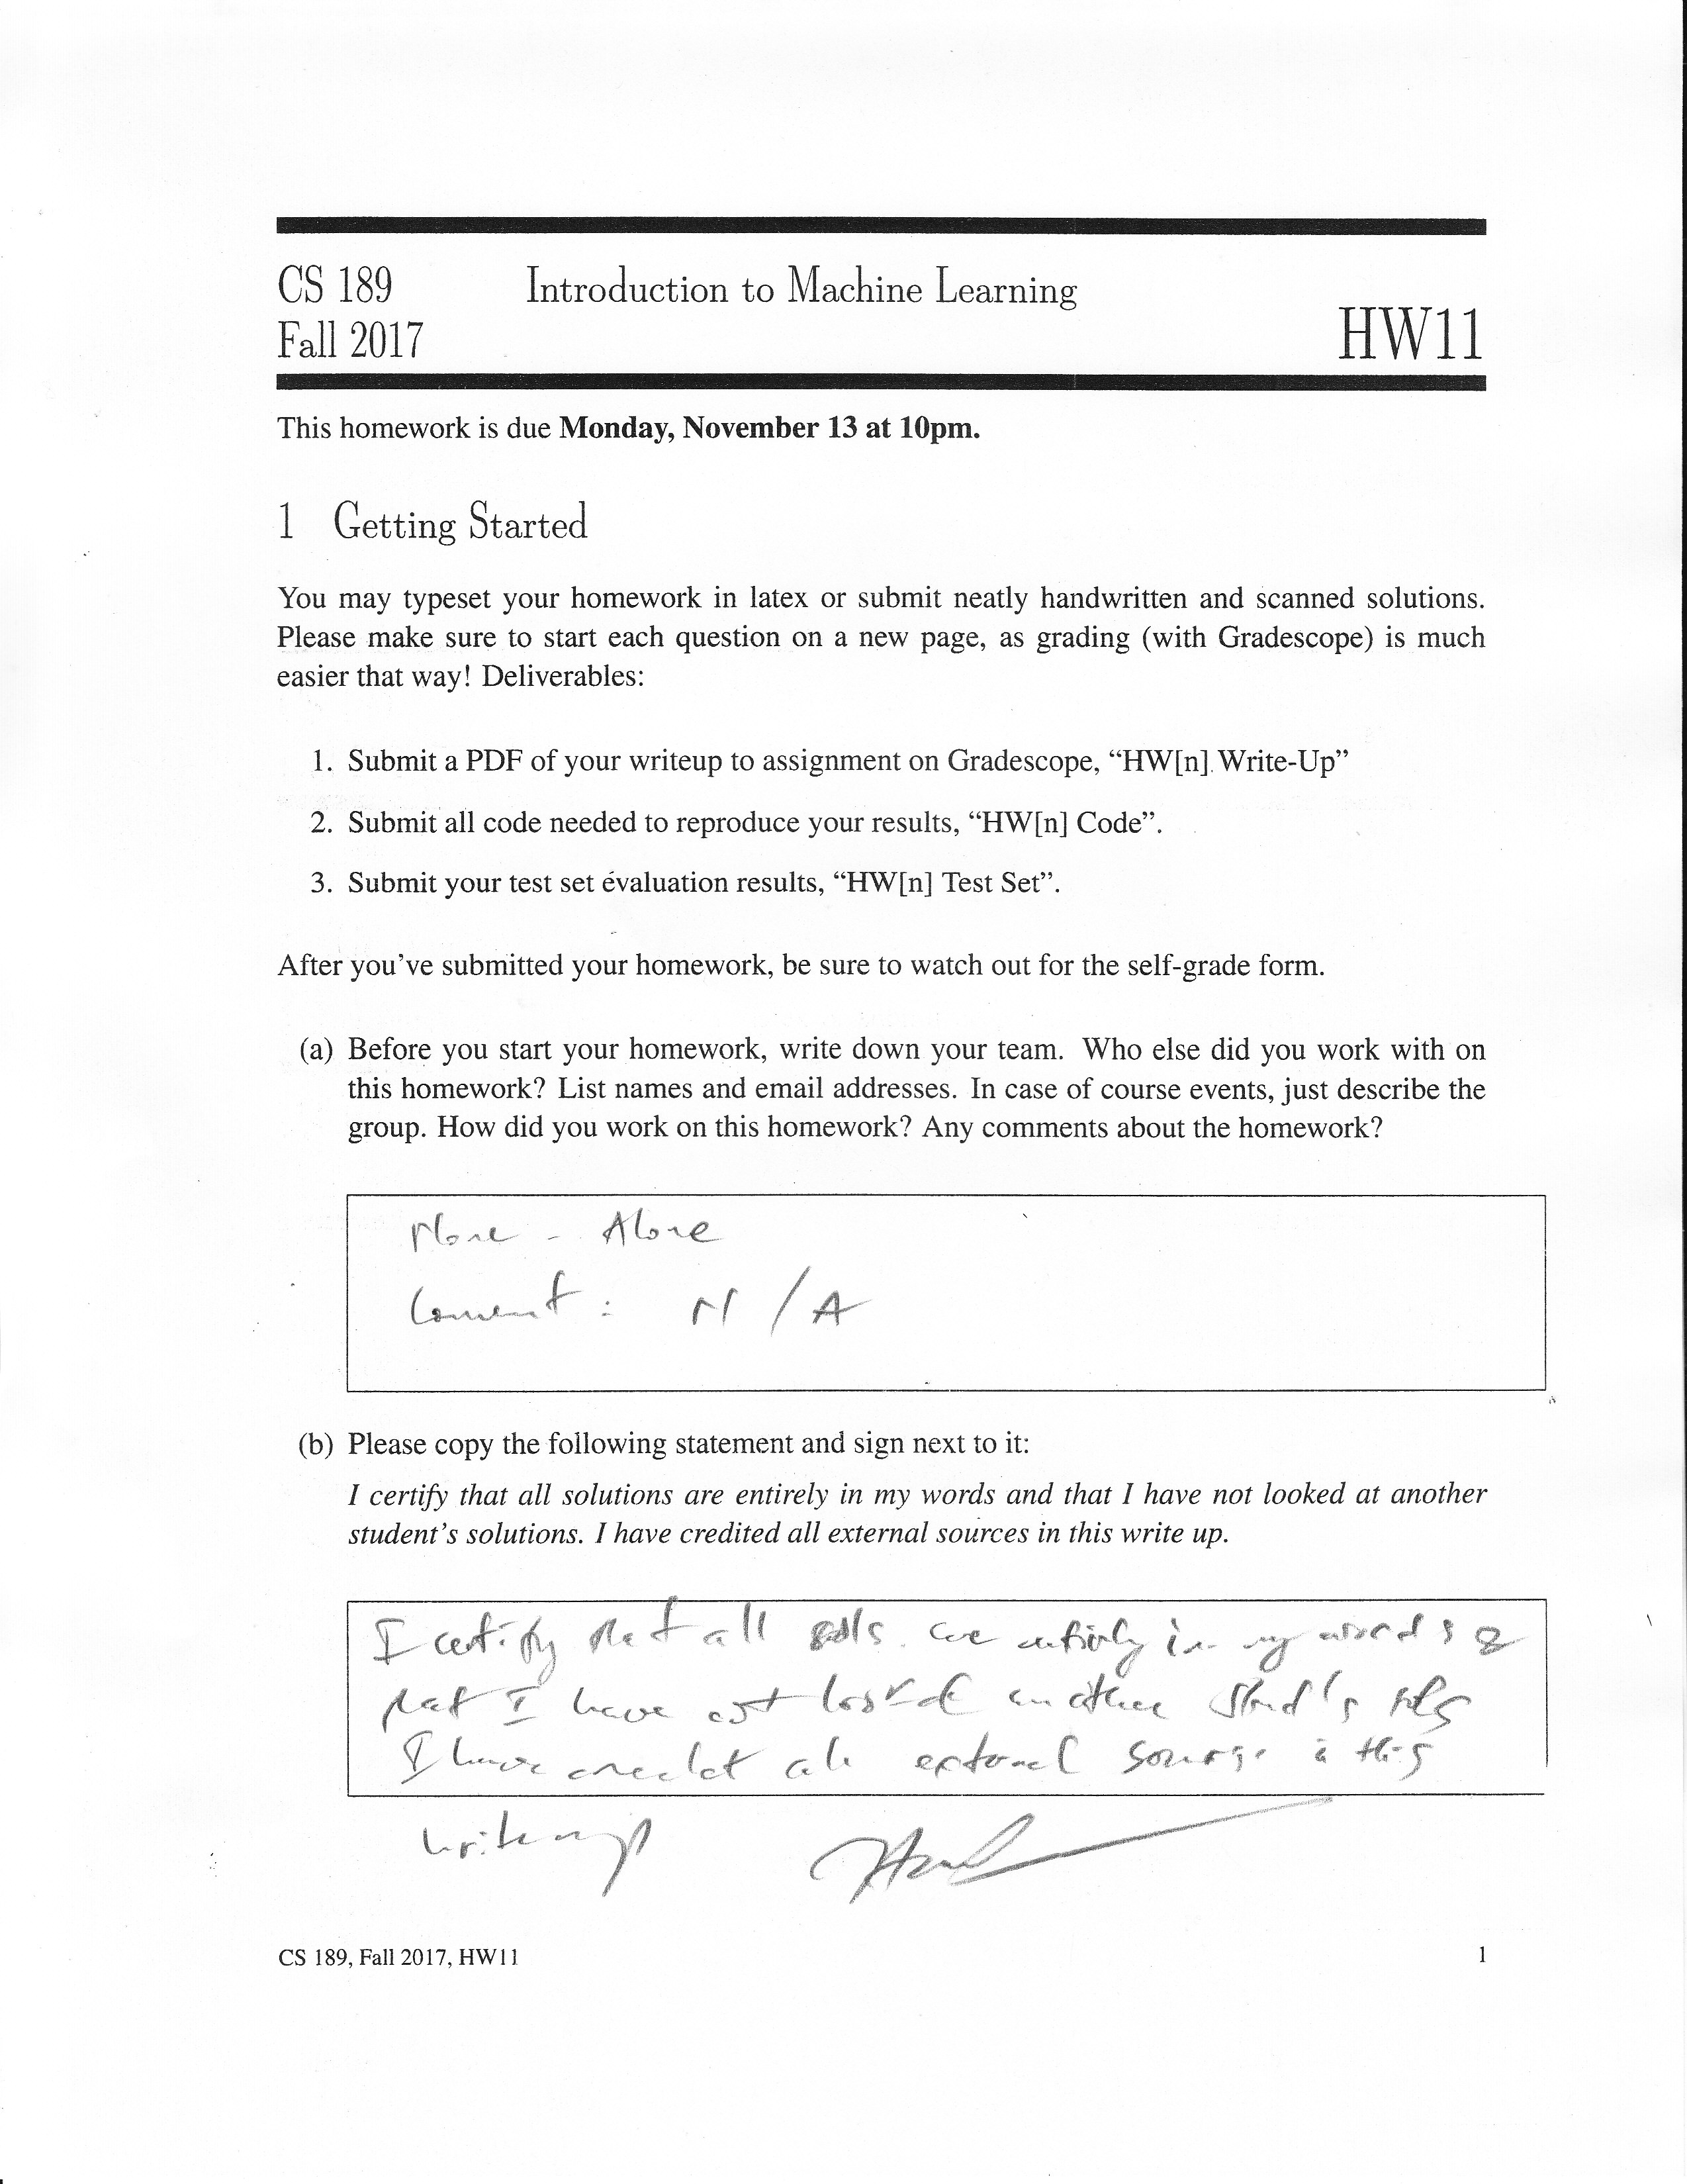 CS 189 Introduction to Machine Learning
Fall 2017 HW11
This homework is due Monday, November 13 at 10pm.
1 Getting Started
You may typeset your homework in latex or submit neatly handwritten and scanned solutions.
Please make sure to start each question on a new page, as grading (with Gradescope) is much
easier that way! Deliverables:
1. Submit a PDF of your writeup to assignment on Gradescope, “HW[n] Write-Up”
2. Submit all code needed to reproduce your results, “HW[n] Code”.
3. Submit your test set evaluation results, “HW[n] Test Set”.
After you’ve submitted your homework, be sure to watch out for the self-grade form.
(a) Before you start your homework, write down your team. Who else did you work with on
this homework? List names and email addresses. In case of course events, just describe the
group. How did you work on this homework? Any comments about the homework?
None - Alone
Comment : N/A
(b) Please copy the following statement and sign next to it:
I certify that all solutions are entirely in my words and that I have not looked at another
student’s solutions. I have credited all external sources in this write up.
I certify that all sols. are entirely in my words &
that I have not looked another stud's sols
I have credit all external sources in this
write up
CS 189, Fall 2017, HW11 1